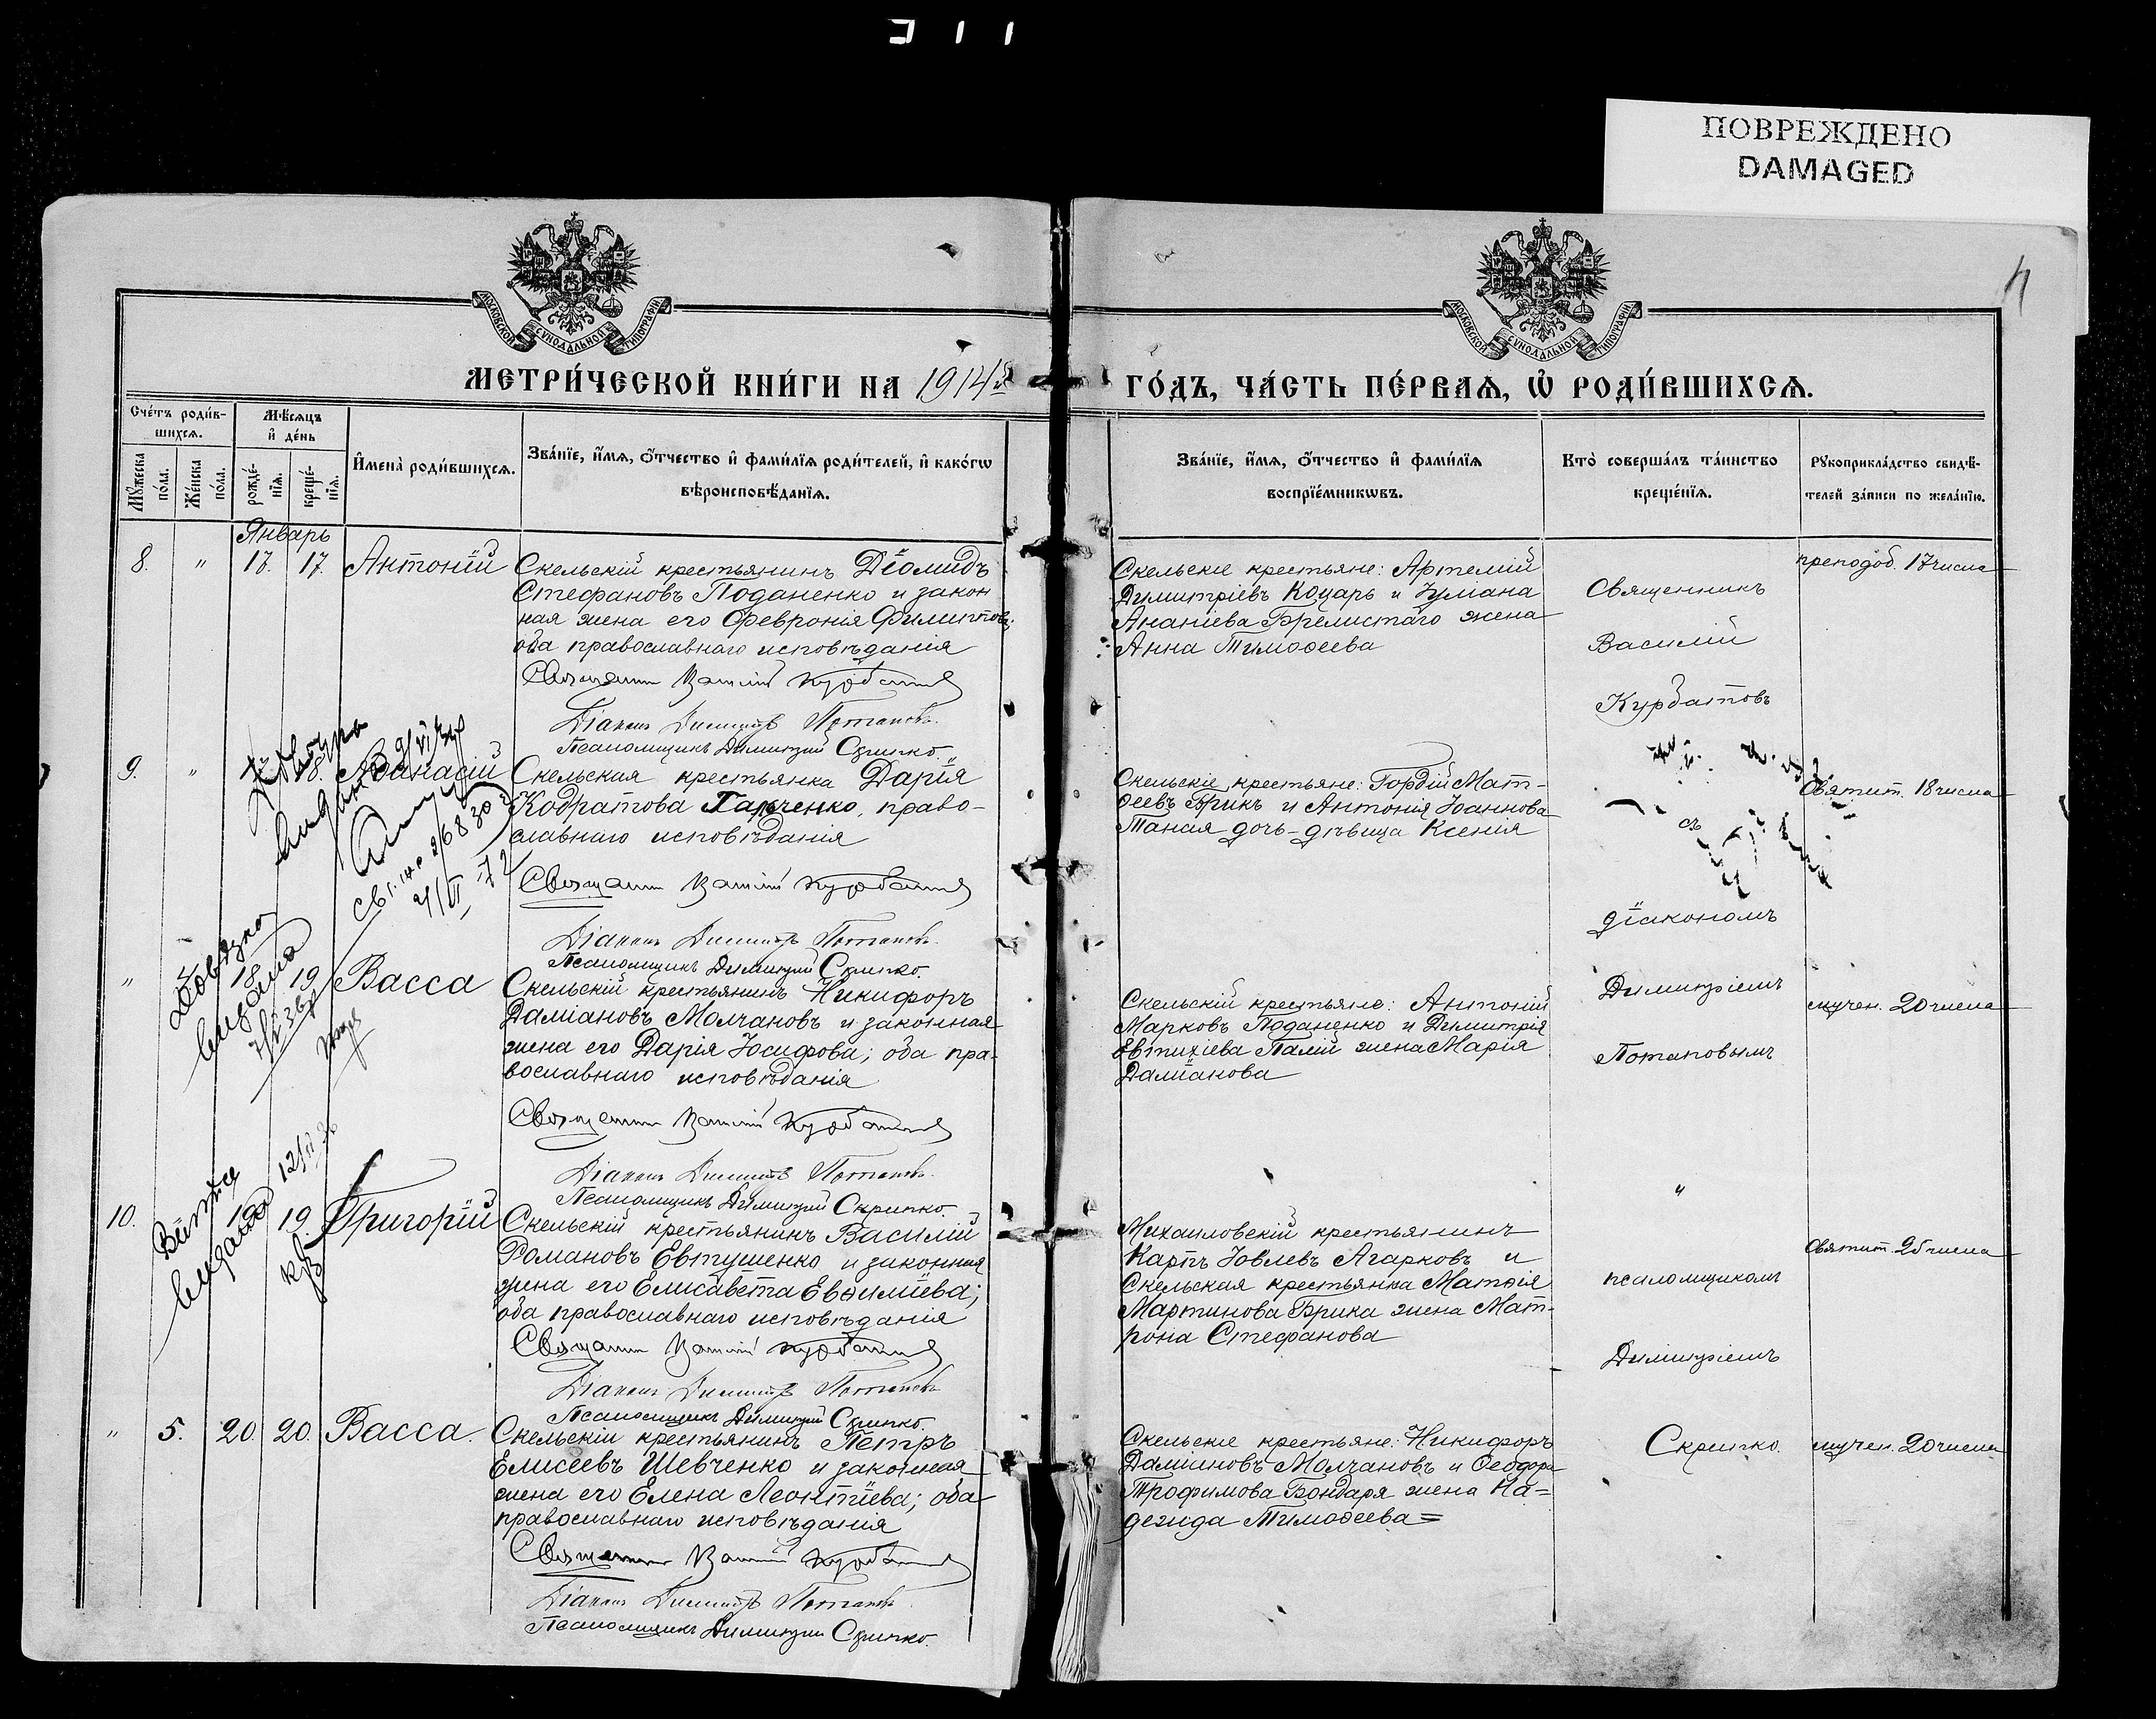 ПОВРЕЖДЕНО
DAMAGED
МОСКОВСКОЙ СѴНОДАЛЬНОЙ ТИПОГРАФІИ
МОСКОВСКОЙ СѴНОДАЛЬНОЙ ТИПОГРАФІИ
МЕТРИ́ЧЕСКОЙ КНИ́ГИ НА 1914й
ГО́ДЪ, ЧА́СТЬ ПЕ́РВАѦ, Ѡ҆ РОДИ́ВШИХСѦ.
Сче́тъ роди́в-
шихсѧ.
Мѣ́сѧцъ
и҆ де́нь
Мꙋ́жеска
по́ла.
Же́нска
по́ла.
рожде́-
нїѧ.
креще́-
нїѧ.
И҆мена̀ роди́вшихсѧ.
Зва́нїе, и҆́мѧ, ѻ҆́тчество и҆ фами́лїѧ роди́телей, и҆ како́гѡ
вѣроисповѣ́данїѧ.
Зва́нїе, и҆́мѧ, ѻ҆́тчество и҆ фами́лїѧ
воспрїе́мникѡвъ.
Кто̀ соверша́лъ та́инство
креще́нїѧ.
Рꙋкоприкла́дство свидѣ́-
телей за́писи по жела́нїю.
Январь
8. " 17. 17. Антоній
Скельскій крестьянинъ Діомидъ
Стефановъ Поданенко и закон
ная жена его Февронія Филиппова;
оба православнаго исповѣданія
Священникъ Василій Курбатовъ
Діаконъ Димитрій Потаповъ.
Псаломщикъ Димитрій Скрипко.
Скельскіе крестьяне: Артемій
Димитріевъ Коцарь и Іуліана
Ананіева Бремистаго жена
Анна Тимоѳеева
Священникъ
Василій
Курбатовъ
преподоб. 17 числа
9. " 18. Аѳанасій
Скельская крестьянка Дарія
Кодратова Гальченко, право-
славнаго исповѣданія
Священникъ Василій Курбатовъ
Діаконъ Димитрій Потаповъ.
Псаломщикъ Димитрій Скрипко.
Скельскіе крестьяне: Гордій Мат-
ѳеевъ Брикъ и Антонія Іоаннова
Таная дочь-дѣвица Ксенія
съ
діакономъ
Святит. 18 числа
" 18 19 Васса
Скельскій крестьянинъ Никифоръ
Даміановъ Молчановъ и законная
жена его Дарія Іосифова; оба пра-
вославнаго исповѣданія
Священникъ Василій Курбатовъ
Діаконъ Димитрій Потаповъ.
Псаломщикъ Димитрій Скрипко.
Скельскій крестьяне: Антоній
Марковъ Поданенко и Димитрія
Евтихіева Палій жена Марія
Даміанова
Димитріемъ
Потаповымъ
мучен. 20 числа
10. 19. 19. Григорій
Скельскій крестьянинъ Василій
Романовъ Евтушенко и законная
жена его Елисавета Евѳиміева;
оба православнаго исповѣданія
Священникъ Василій Курбатовъ
Діаконъ Димитрій Потаповъ
Псаломщикъ Димитрій Скрипко.
Михаиловскій крестьянинъ
Карпъ Іовлевъ Агарковъ и
Скельская крестьянка Матѳія
Мартинова Брика жена Мат-
рона Стефанова
"
"
псаломщикомъ
Димитріемъ
Святит. 25 числа
" 5. 20. 20. Васса.
Скельскій крестьянинъ Петръ
Елисеевъ Шевченко и законная
жена его Елена Леонтіева; оба
православнаго исповѣданія
Священникъ Василій Курбатовъ
Діаконъ Димитрій Потаповъ.
Псаломщикъ Димитрій Скрипко.
Скельскіе крестьяне: Никифоръ
Даміановъ Молчановъ и Ѳеодора
Трофимова Бондаря жена На-
дежда Тимоѳеева=
Скрипко.
мучен. 20 числа
Довідка
видана
Витяг
видано